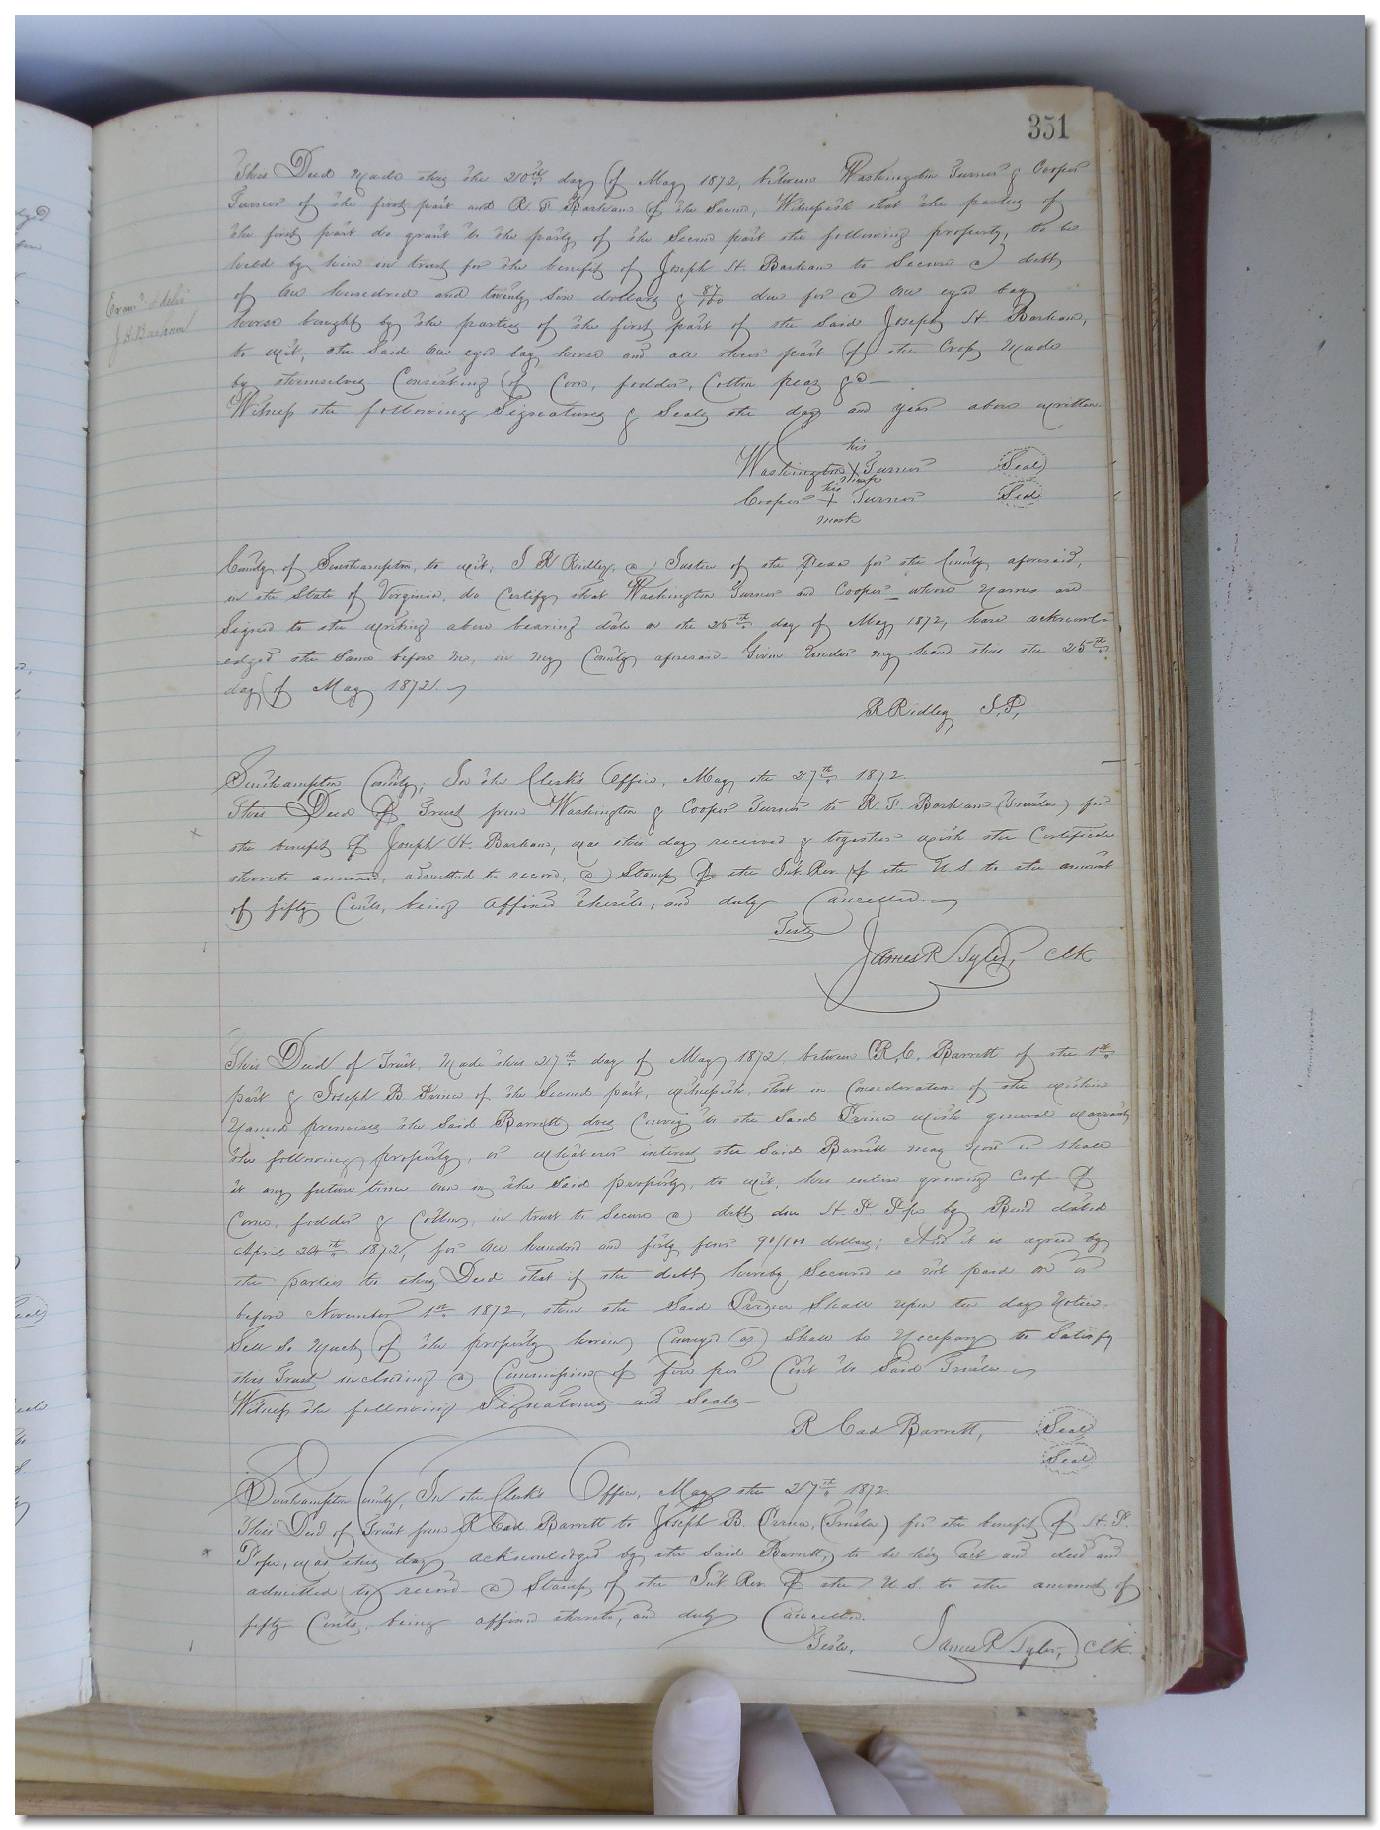 351
This Deed made this the 20th day of May 1872, between Washington Turner & Cooper
Turner of the first part and R. T. Barham of the Second, Witnesseth that the parties of
the first part do grant to the party of the Second part the following property, to be
held by him in trust for the benefit of Joseph H. Barham to Secure a debt
of One hundred and twenty Six dollars & 87/100 due for a One eyed bay
horse bought by the parties of the first part of the Said Joseph H. Barham,
to wit, the Said One eyed bay horse and all their part of the Crop Made
by themselves Consisting of Corn, fodder, Cotton peas &c
Witness the following Signatures & Seals the day and year above written.
Exmd & deld
J. H. Barham
his
Washington X Turner Seal
mark
his
Cooper + Turner Seal
mark
County of Southampton, to wit, I R Ridley, a Justice of the Peace for the County aforesaid,
in the State of Virginia, do Certify that Washington Turner and Cooper whose Names are
Signed to the writing above bearing date on the 25th day of May 1872, have acknowl-
edged the Same before me, in my County aforesaid Given Under my hand this the 25th
day of May 1872.
R Ridley J.P.
Southampton County; In the Clerk's Office, May the 27th 1872.
This Deed of Trust from Washington & Cooper Turner to R. T. Barham (Trustee) for
the benefit of Joseph H. Barham, was this day received & together with the Certificate
thereto annexed, admitted to record, a Stamp of the Int. Rev. of the U S. to the amount
of fifty Cents, being affixed thereto, and duly Cancelled.
Teste
James R Tyler, Clk
This Deed of Trust, made this 27th day of May 1872 between R. C. Barrett of the 1st
part & Joseph B. Prince of the Second part, witnesseth, that in Consideration of the within
Named premises the Said Barrett does Convey to the Said Prince with general warranty
the following property, or whatever interest the Said Barrett may now or shall
at any future time own in the Said property, to wit, his entire growing Crop of
Corn, fodder & Cotton, in trust to Secure a debt due H. P. Pope by Bond dated
April 24th 1872, for One hundred and forty four 90/100 dollars; And it is agreed by
the parties to this Deed that if the debt hereby Secured is not paid on or
before November 1st 1872, then the Said Prince Shall upon ten days Notice.
Sell So Much of the property herein Conveyed as Shall be Necessary to Satisfy
this Trust including a Commission of five per Cent to Said Trustee
Witness the following Signatures and Seals
R Cad Barrett, Seal
Seal
Southampton County, In the Clerk's Office, May the 27th 1872.
This Deed of Trust from R Cad Barrett to Joseph B. Prince, (Trustee) for the benefit of H. P.
Pope, was this day acknowledged by the Said Barrett, to be his act and deed and
admitted to record a Stamp of the Int. Rev. of the U. S. to the amount of
fifty Cents, being affixed thereto, and duly Cancelled.
Teste, James R Tyler, Clk.